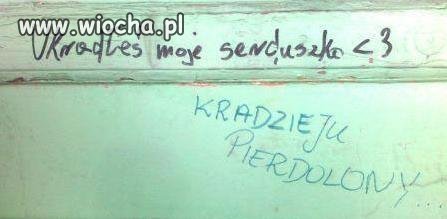 www.wiocha.pl
Ukradłeś moje serduszko <3
KRADZIEJU
PIERDOLONY...